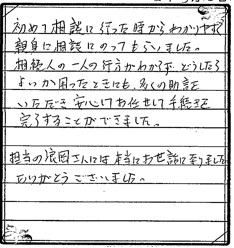 初めて相談に行った時からわかりやすく
親身に相談にのってもらいました。
相続人の一人の行方がわからず、どうしたら
よいか困ったときにも、多くの助言を
いただき安心してお任せして手続きを
完了することができました。
担当の浪岡さんには本当にお世話になりました
ありがとうございました。